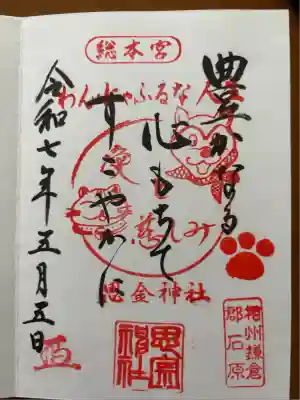 総本宮
豊かなる
心もちて
すこやかに
令和七年五月五日
わんにゃふるな
愛
慈しみ
思金神社
思金
神社
相州鎌倉
郡石原